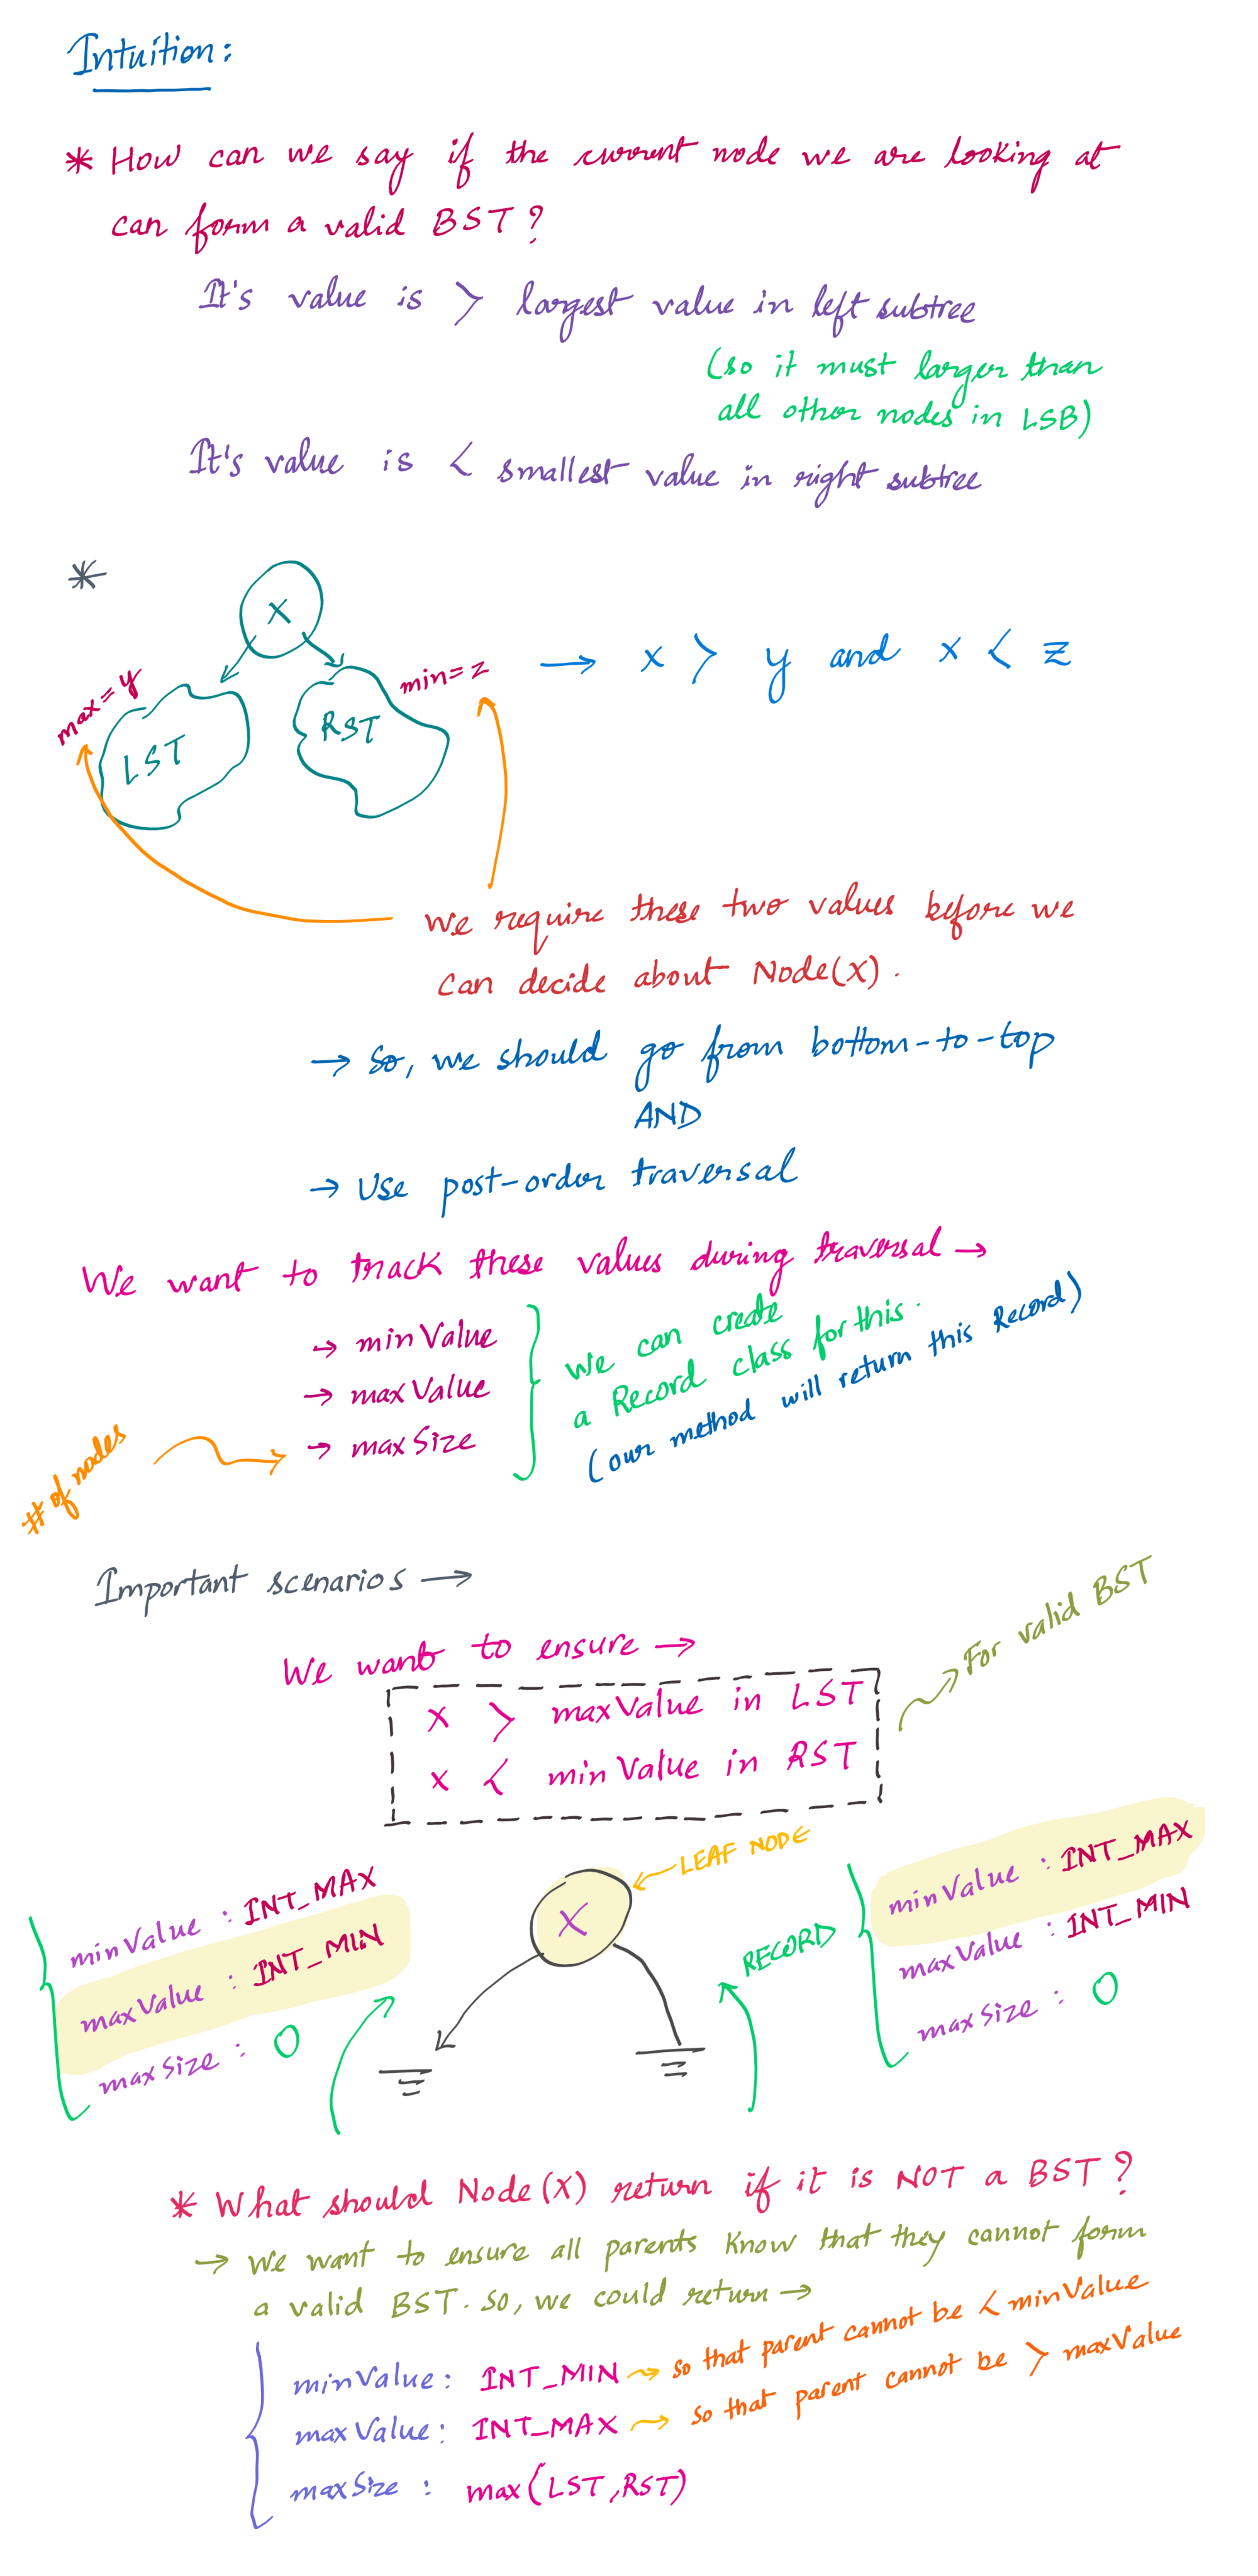 Intuition:
* How can we say if the current node we are looking at
can form a valid BST?
It's value is > largest value in left subtree
(so it must larger than
all other nodes in LSB)
It's value is < smallest value in right subtree
*
X
max=y
LST
RST
min=z
→ x > y and x < z
We require these two values before we
can decide about Node(X).
→ So, we should go from bottom-to-top
AND
→ Use post-order traversal
We want to track these values during traversal →
→ minValue
→ maxValue
→ maxSize
# of nodes
We can create
a Record class for this.
(our method will return this Record)
Important scenarios →
We want to ensure →
X > maxValue in LST
X < minValue in RST
For valid BST
LEAF NODE
X
minValue : INT_MAX
maxValue : INT_MIN
maxSize : 0
RECORD
minValue : INT_MAX
maxValue : INT_MIN
maxSize : 0
* What should Node(X) return if it is NOT a BST?
→ We want to ensure all parents know that they cannot form
a valid BST. So, we could return →
minValue: INT_MIN → so that parent cannot be < minValue
maxValue: INT_MAX → so that parent cannot be > maxValue
maxSize : max(LST,RST)